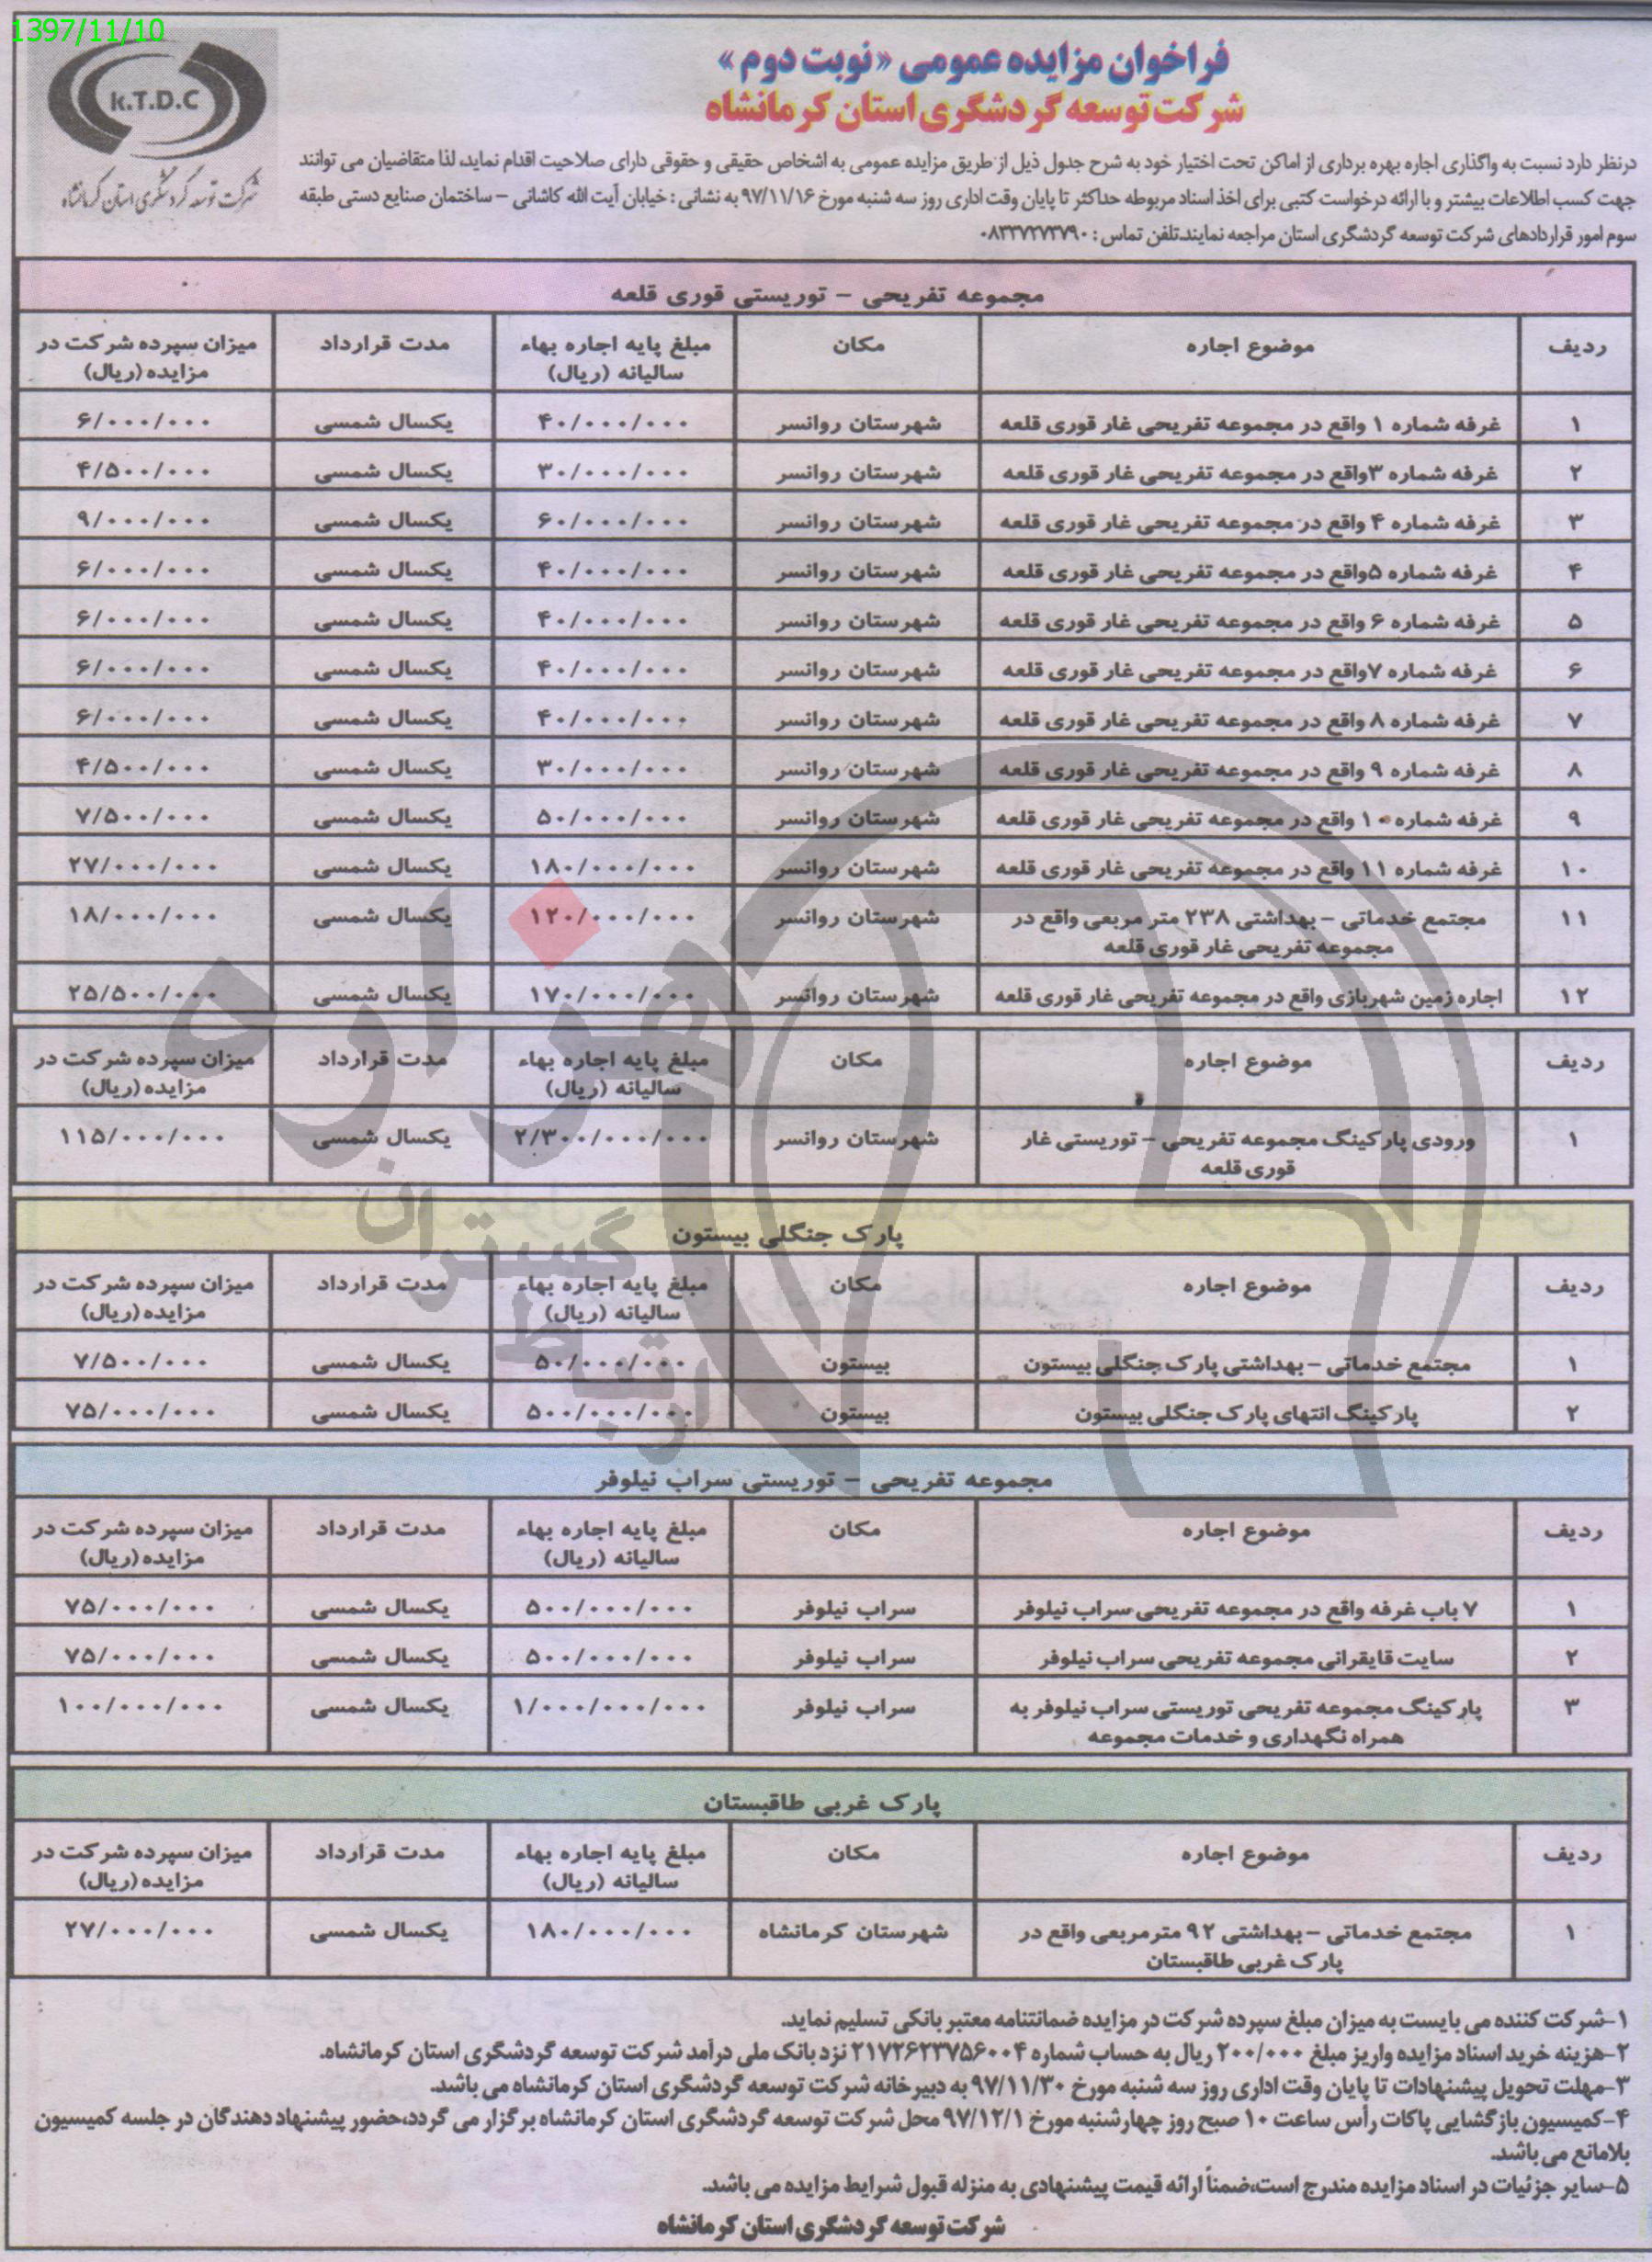 1397/11/10
K.T.D.C
شرکت توسعه گردشگری استان کرمانشاه
فراخوان مزایده عمومی «نوبت دوم»
شرکت توسعه گردشگری استان کرمانشاه
درنظر دارد نسبت به واگذاری اجاره بهره برداری از اماکن تحت اختیار خود به شرح جدول ذیل از طریق مزایده عمومی به اشخاص حقیقی و حقوقی دارای صلاحیت اقدام نماید، لذا متقاضیان می توانند
جهت کسب اطلاعات بیشتر و با ارائه درخواست کتبی برای اخذ اسناد مربوطه حداکثر تا پایان وقت اداری روز سه شنبه مورخ ۹۷/۱۱/۱۶ به نشانی : خیابان آیت الله کاشانی – ساختمان صنایع دستی طبقه
سوم امور قراردادهای شرکت توسعه گردشگری استان مراجعه نمایند.تلفن تماس : ۰۸۳۳۷۲۷۳۷۹۰
مجموعه تفریحی – توریستی قوری قلعه
ردیف موضوع اجاره مکان مبلغ پایه اجاره بهاء سالیانه (ریال) مدت قرارداد میزان سپرده شرکت در مزایده (ریال)
۱ غرفه شماره ۱ واقع در مجموعه تفریحی غار قوری قلعه شهرستان روانسر ۴۰/۰۰۰/۰۰۰ یکسال شمسی ۶/۰۰۰/۰۰۰
۲ غرفه شماره ۳واقع در مجموعه تفریحی غار قوری قلعه شهرستان روانسر ۳۰/۰۰۰/۰۰۰ یکسال شمسی ۴/۵۰۰/۰۰۰
۳ غرفه شماره ۴ واقع در مجموعه تفریحی غار قوری قلعه شهرستان روانسر ۶۰/۰۰۰/۰۰۰ یکسال شمسی ۹/۰۰۰/۰۰۰
۴ غرفه شماره ۵واقع در مجموعه تفریحی غار قوری قلعه شهرستان روانسر ۴۰/۰۰۰/۰۰۰ یکسال شمسی ۶/۰۰۰/۰۰۰
۵ غرفه شماره ۶ واقع در مجموعه تفریحی غار قوری قلعه شهرستان روانسر ۴۰/۰۰۰/۰۰۰ یکسال شمسی ۶/۰۰۰/۰۰۰
۶ غرفه شماره ۷واقع در مجموعه تفریحی غار قوری قلعه شهرستان روانسر ۴۰/۰۰۰/۰۰۰ یکسال شمسی ۶/۰۰۰/۰۰۰
۷ غرفه شماره ۸ واقع در مجموعه تفریحی غار قوری قلعه شهرستان روانسر ۴۰/۰۰۰/۰۰۰ یکسال شمسی ۶/۰۰۰/۰۰۰
۸ غرفه شماره ۹ واقع در مجموعه تفریحی غار قوری قلعه شهرستان روانسر ۳۰/۰۰۰/۰۰۰ یکسال شمسی ۴/۵۰۰/۰۰۰
۹ غرفه شماره ۱۰ واقع در مجموعه تفریحی غار قوری قلعه شهرستان روانسر ۵۰/۰۰۰/۰۰۰ یکسال شمسی ۷/۵۰۰/۰۰۰
۱۰ غرفه شماره ۱۱ واقع در مجموعه تفریحی غار قوری قلعه شهرستان روانسر ۱۸۰/۰۰۰/۰۰۰ یکسال شمسی ۲۷/۰۰۰/۰۰۰
۱۱ مجتمع خدماتی – بهداشتی ۲۳۸ متر مربعی واقع در مجموعه تفریحی غار قوری قلعه شهرستان روانسر ۱۲۰/۰۰۰/۰۰۰ یکسال شمسی ۱۸/۰۰۰/۰۰۰
۱۲ اجاره زمین شهربازی واقع در مجموعه تفریحی غار قوری قلعه شهرستان روانسر ۱۷۰/۰۰۰/۰۰۰ یکسال شمسی ۲۵/۵۰۰/۰۰۰
ردیف موضوع اجاره مکان مبلغ پایه اجاره بهاء سالیانه (ریال) مدت قرارداد میزان سپرده شرکت در مزایده (ریال)
۱ ورودی پارکینگ مجموعه تفریحی – توریستی غار قوری قلعه شهرستان روانسر ۲/۳۰۰/۰۰۰/۰۰۰ یکسال شمسی ۱۱۵/۰۰۰/۰۰۰
پارک جنگلی بیستون
ردیف موضوع اجاره مکان مبلغ پایه اجاره بهاء سالیانه (ریال) مدت قرارداد میزان سپرده شرکت در مزایده (ریال)
۱ مجتمع خدماتی – بهداشتی پارک جنگلی بیستون بیستون ۵۰/۰۰۰/۰۰۰ یکسال شمسی ۷/۵۰۰/۰۰۰
۲ پارکینگ انتهای پارک جنگلی بیستون بیستون ۵۰۰/۰۰۰/۰۰۰ یکسال شمسی ۷۵/۰۰۰/۰۰۰
مجموعه تفریحی – توریستی سراب نیلوفر
ردیف موضوع اجاره مکان مبلغ پایه اجاره بهاء سالیانه (ریال) مدت قرارداد میزان سپرده شرکت در مزایده (ریال)
۱ ۷ باب غرفه واقع در مجموعه تفریحی سراب نیلوفر سراب نیلوفر ۵۰۰/۰۰۰/۰۰۰ یکسال شمسی ۷۵/۰۰۰/۰۰۰
۲ سایت قایقرانی مجموعه تفریحی سراب نیلوفر سراب نیلوفر ۵۰۰/۰۰۰/۰۰۰ یکسال شمسی ۷۵/۰۰۰/۰۰۰
۳ پارکینگ مجموعه تفریحی توریستی سراب نیلوفر به همراه نگهداری و خدمات مجموعه سراب نیلوفر ۱/۰۰۰/۰۰۰/۰۰۰ یکسال شمسی ۱۰۰/۰۰۰/۰۰۰
پارک غربی طاقبستان
ردیف موضوع اجاره مکان مبلغ پایه اجاره بهاء سالیانه (ریال) مدت قرارداد میزان سپرده شرکت در مزایده (ریال)
۱ مجتمع خدماتی – بهداشتی ۹۲ مترمربعی واقع در پارک غربی طاقبستان شهرستان کرمانشاه ۱۸۰/۰۰۰/۰۰۰ یکسال شمسی ۲۷/۰۰۰/۰۰۰
۱–شرکت کننده می بایست به میزان مبلغ سپرده شرکت در مزایده ضمانتنامه معتبر بانکی تسلیم نماید.
۲–هزینه خرید اسناد مزایده واریز مبلغ ۲۰۰/۰۰۰ ریال به حساب شماره ۲۱۷۲۶۲۳۷۵۶۰۰۴ نزد بانک ملی درآمد شرکت توسعه گردشگری استان کرمانشاه.
۳–مهلت تحویل پیشنهادات تا پایان وقت اداری روز سه شنبه مورخ ۹۷/۱۱/۳۰ به دبیرخانه شرکت توسعه گردشگری استان کرمانشاه می باشد.
۴–کمیسیون بازگشایی پاکات رأس ساعت ۱۰ صبح روز چهارشنبه مورخ ۹۷/۱۲/۱ محل شرکت توسعه گردشگری استان کرمانشاه برگزار می گردد،حضور پیشنهاد دهندگان در جلسه کمیسیون
بلامانع می باشد.
۵–سایر جزئیات در اسناد مزایده مندرج است،ضمناً ارائه قیمت پیشنهادی به منزله قبول شرایط مزایده می باشد.
شرکت توسعه گردشگری استان کرمانشاه
هزاره
ارتباط گستران